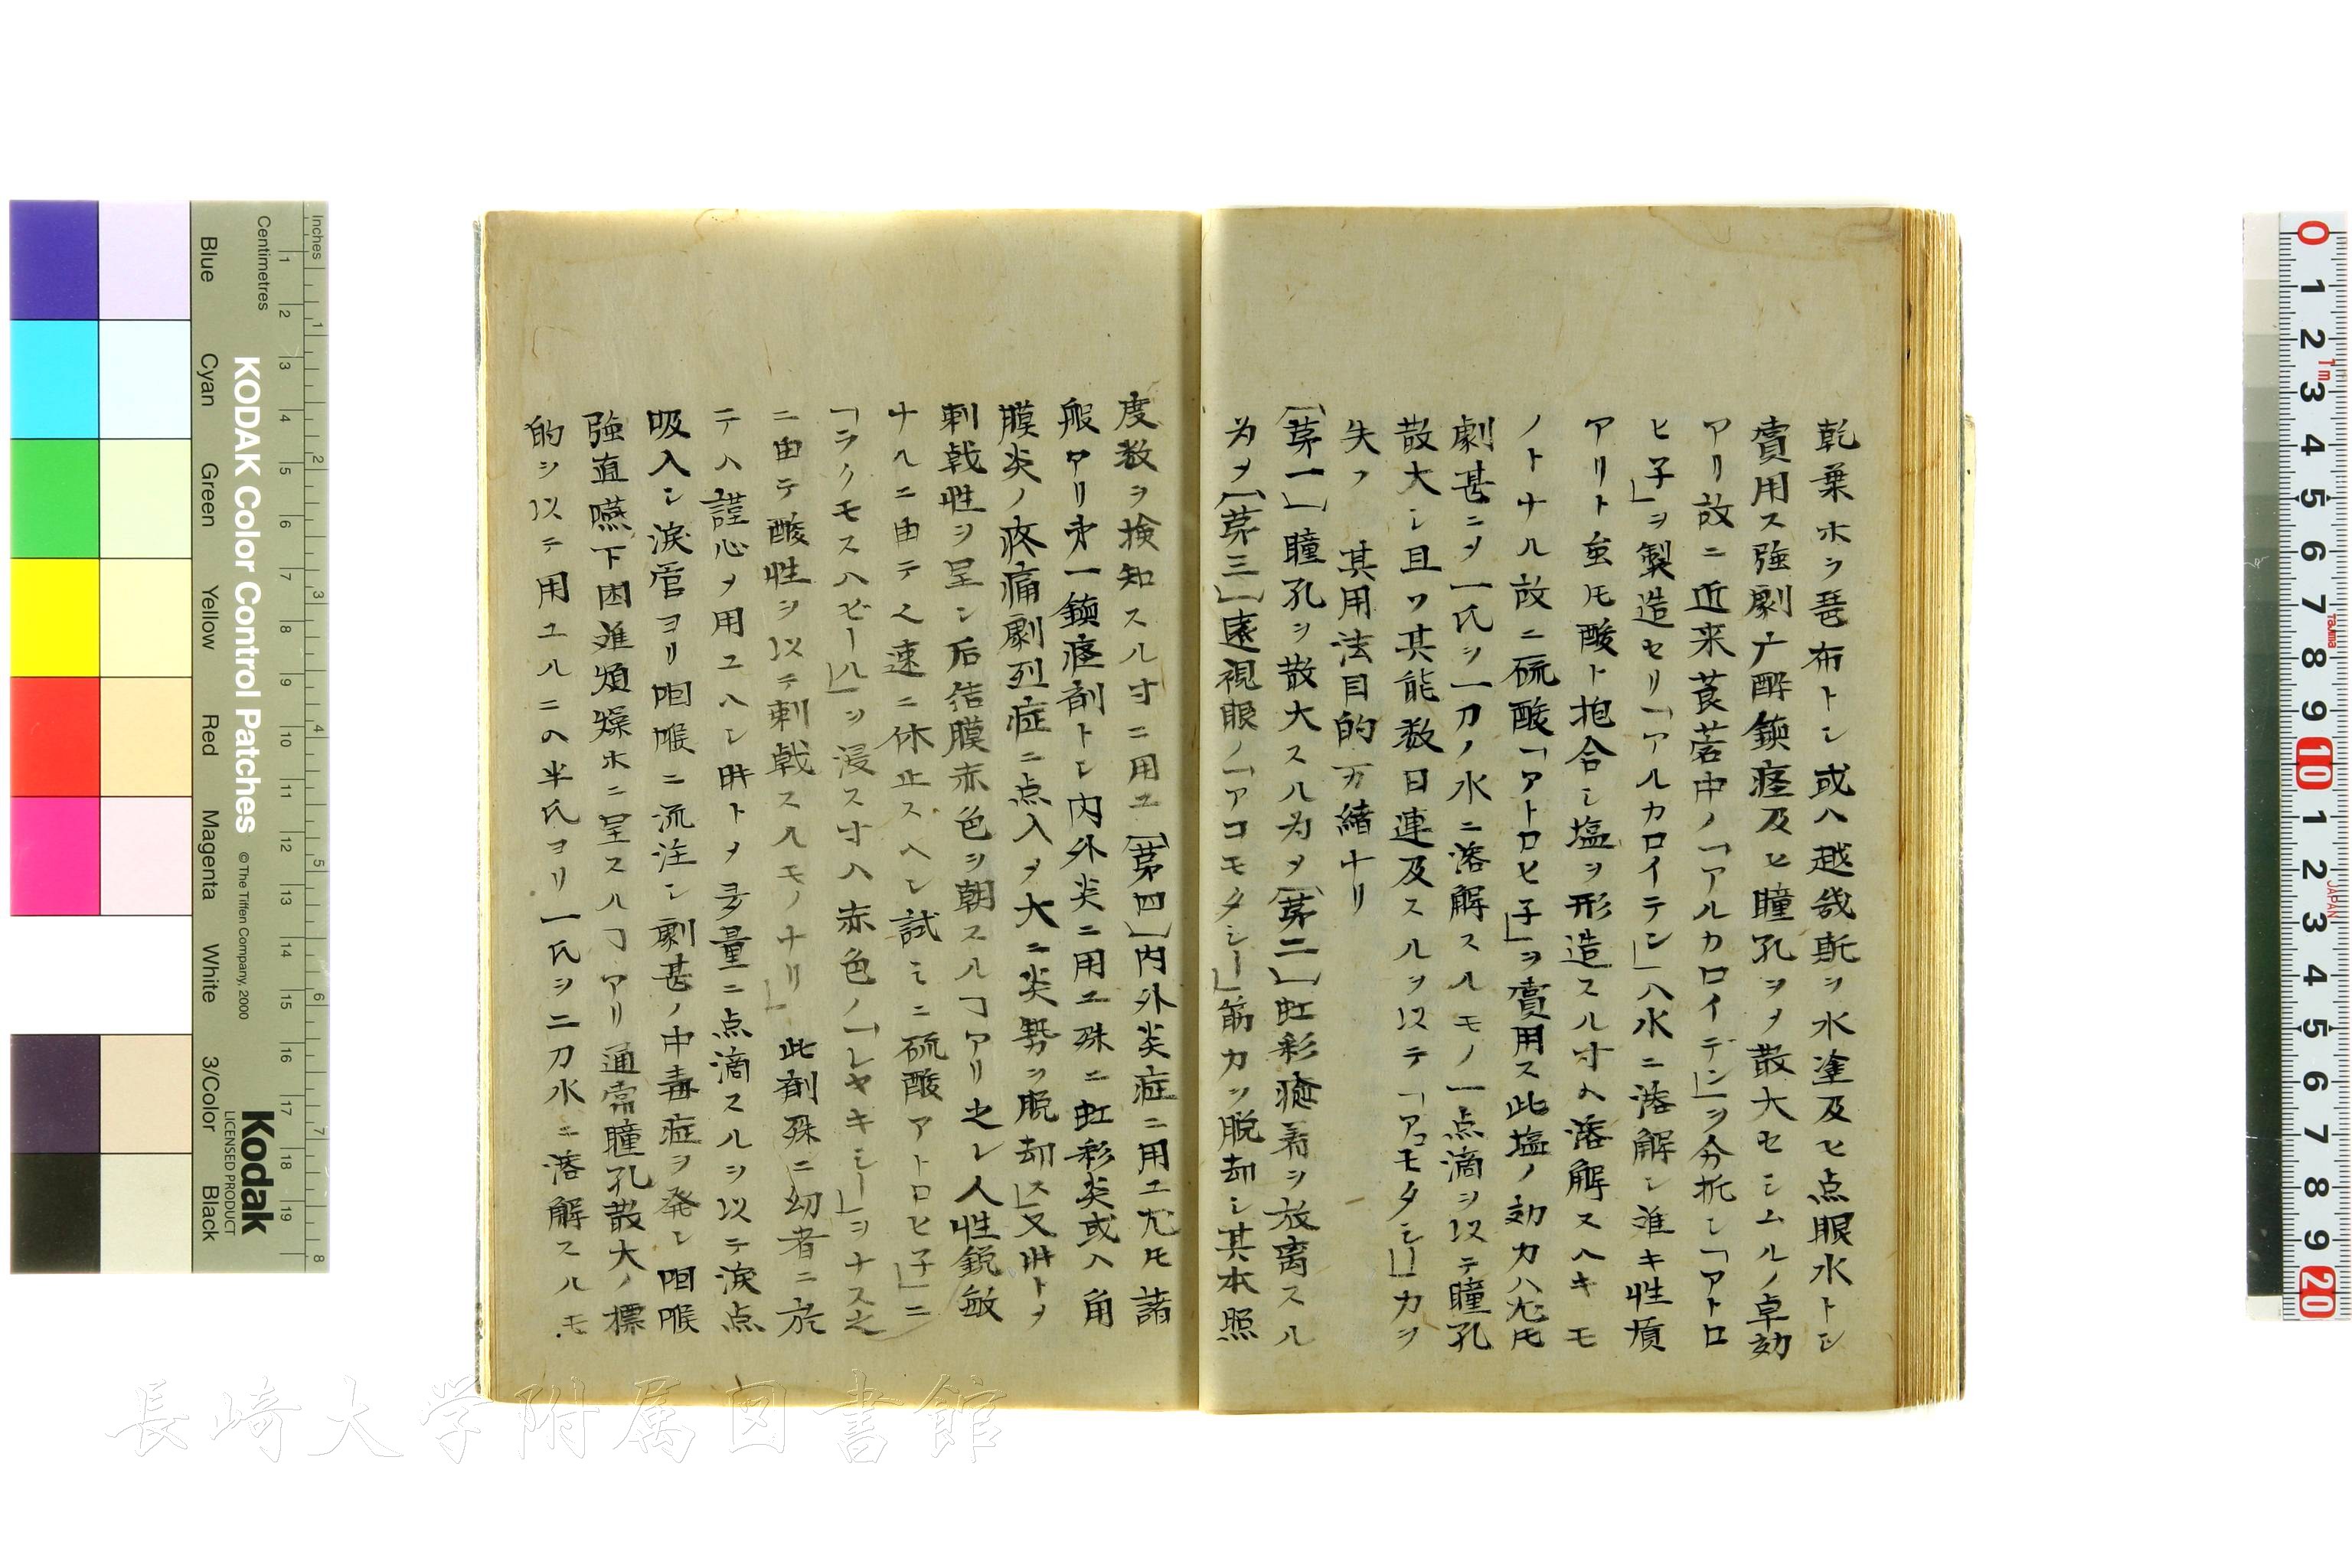 乾葉ホヲ琶布トシ或ハ越幾斯ヲ水塗及ヒ点眼水トシ
賣用ス強劇ナ酔鎮痙及ヒ瞳孔ヲメ散大セシムルノ卓効
アリ故ニ近来莨菪中ノ「アルカロイデン」ヲ分拆シ「アトロ
ヒ子」ヲ製造セリ「アルカロイテン」ハ水ニ溶解シ難キ性質
アリト虽モ酸ト抱合シ塩ヲ形造スル寸ハ溶解スヘキモ
ノトナル故ニ硫酸「アトロヒ子」ヲ賣用ス此塩ノ効力ハ尤モ
劇甚ニメ一氏ヲ一刀ノ水ニ溶解スルモノ一点滴ヲ以テ瞳孔
散大シ且ツ其能数日連及スルヲ以テ「アコモタシー」力ヲ
失フ 其用法目的万緒ナリ
(第一)瞳孔ヲ散大スル為メ(第二)虹彩癒着ヲ放离スル
為メ(第三)遠視眼ノ「アコモタシー」筋力ヲ脱却シ其本照
度数ヲ検知スル寸ニ用ユ(第四)内外炎症ニ用ユ尤モ諸
般アリ㐧一鎮痙剤トシ内外炎ニ用ユ殊ニ虹彩炎或ハ角
膜炎ノ疼痛劇烈症ニ点入メ大ニ炎勢ヲ脱却ス」又時トメ
刺戟性ヲ呈シ后結膜赤色ヲ朝スルヿアリ之レ人性鋭敏
ナルニ由テ之速ニ休止スヘシ試ミニ硫酸アトロヒ子」ニ
「ラクモスハピール」ヲ浸ス寸ハ赤色ノ「レヤキシー」ヲナス之
ニ由テ酸性ヲ以テ刺戟スルモノナリ」 此剤殊ニ幼者ニ於
テハ謹心メ用ユヘシ時トメ多量ニ点滴スルヲ以テ涙点
吸入シ涙管ヨリ咽喉ニ流注シ劇甚ノ中毒症ヲ発シ咽喉
強直嚥下困难煩燥ホニ呈スルヿアリ通常瞳孔散大ノ標
的ヲ以テ用ユルニハ半氏ヨリ一氏ヲ二刀水ニ溶解スルモ
KODAK Color Control Patches
© The Tiffen Company, 2000
Kodak
LICENSED PRODUCT
Inches
Centimetres
Blue
Cyan
Green
Yellow
Red
Magenta
White
3/Color
Black
長崎大学附属図書館